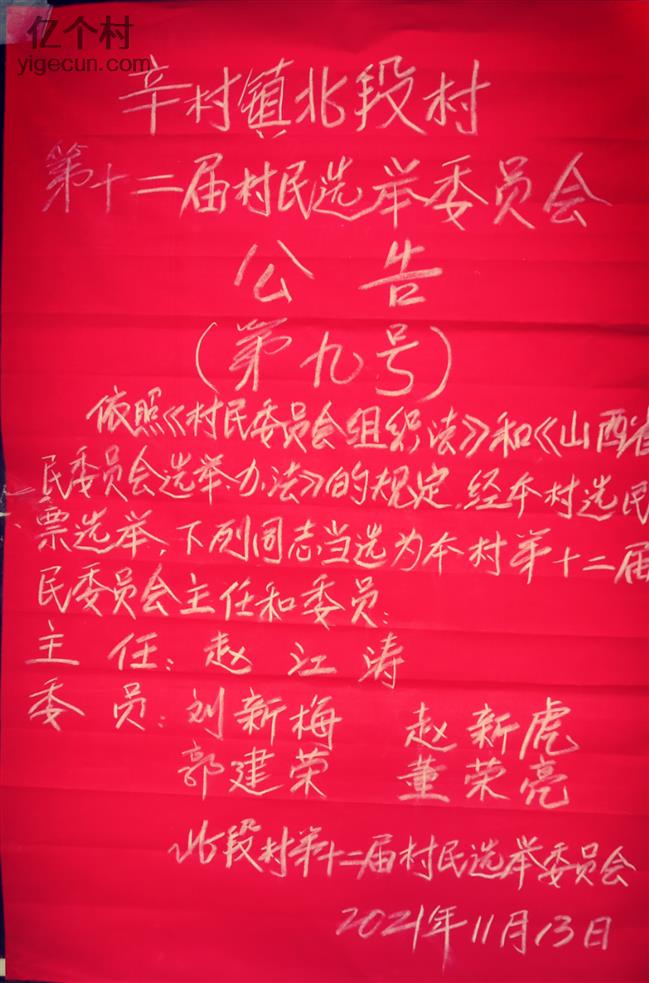 亿个村
yigecun.com
辛村镇北段村
第十二届村民选举委员会
公告
(第九号)
依照《村民委员会组织法》和《山西省
民委员会选举办法》的规定,经本村选民
票选举,下列同志当选为本村第十二届
民委员会主任和委员:
主任:赵江涛
委员:刘新梅 赵新虎
郭建荣 董荣亮
北段村第十二届村民选举委员会
2021年11月13日